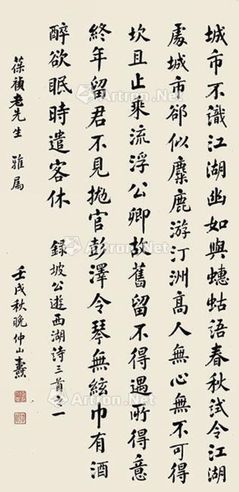 城市不識江湖幽如與蟪蛄語春秋試令江湖
處城市卻似麋鹿游汀洲高人無心無不可得
坎且止乘流浮公卿故舊留不得遇所得意
終年留君不見拋官彭澤令琴無絃巾有酒
醉欲眠時遣客休
錄坡公遊西湖詩三首之一
葆楨老先生 雅屬
壬戌秋晚仲山燾
Artron.Net